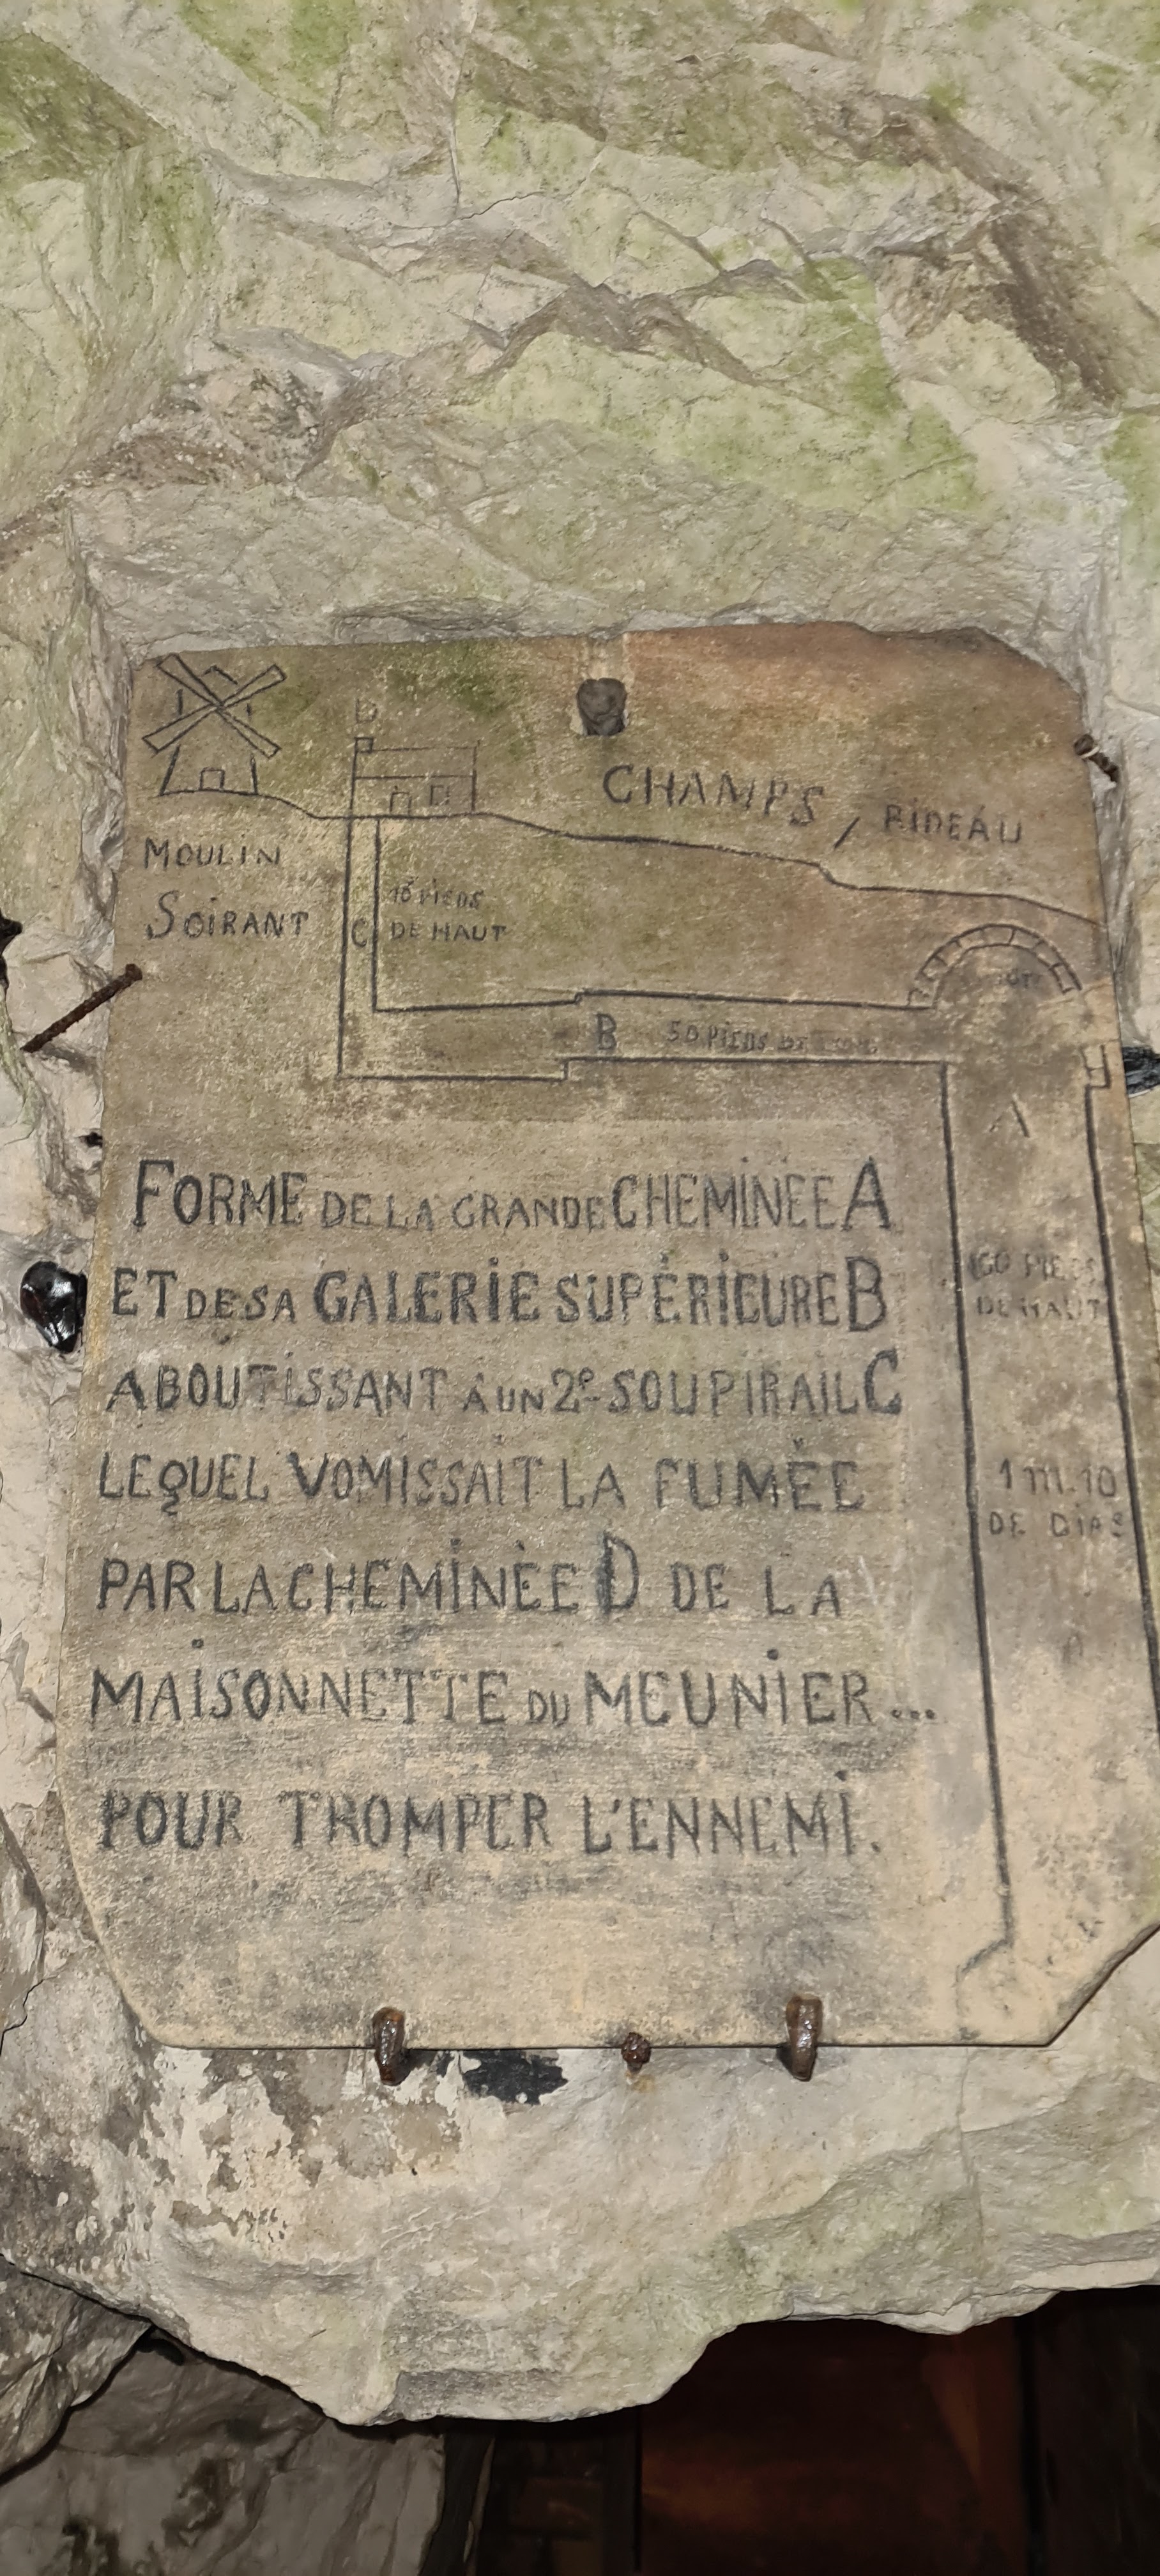 D
CHAMPS / RIDEAU
MOULIN
SOIRANT
PIEDS
C DE HAUT
B 50 PIEDS DE
A
PIEDS
DE HAUT
1 m. 10
DE
FORME DE LA GRANDE CHEMINEE A
ET DE SA GALERIE SUPÉRIEURE B
ABOUTISSANT À UN 2e SOUPIRAIL C
LEQUEL VOMISSAIT LA FUMÉE
PAR LA CHEMINÈE D DE LA
MAISONNETTE DU MEUNIER...
POUR TROMPER L'ENNEMI.